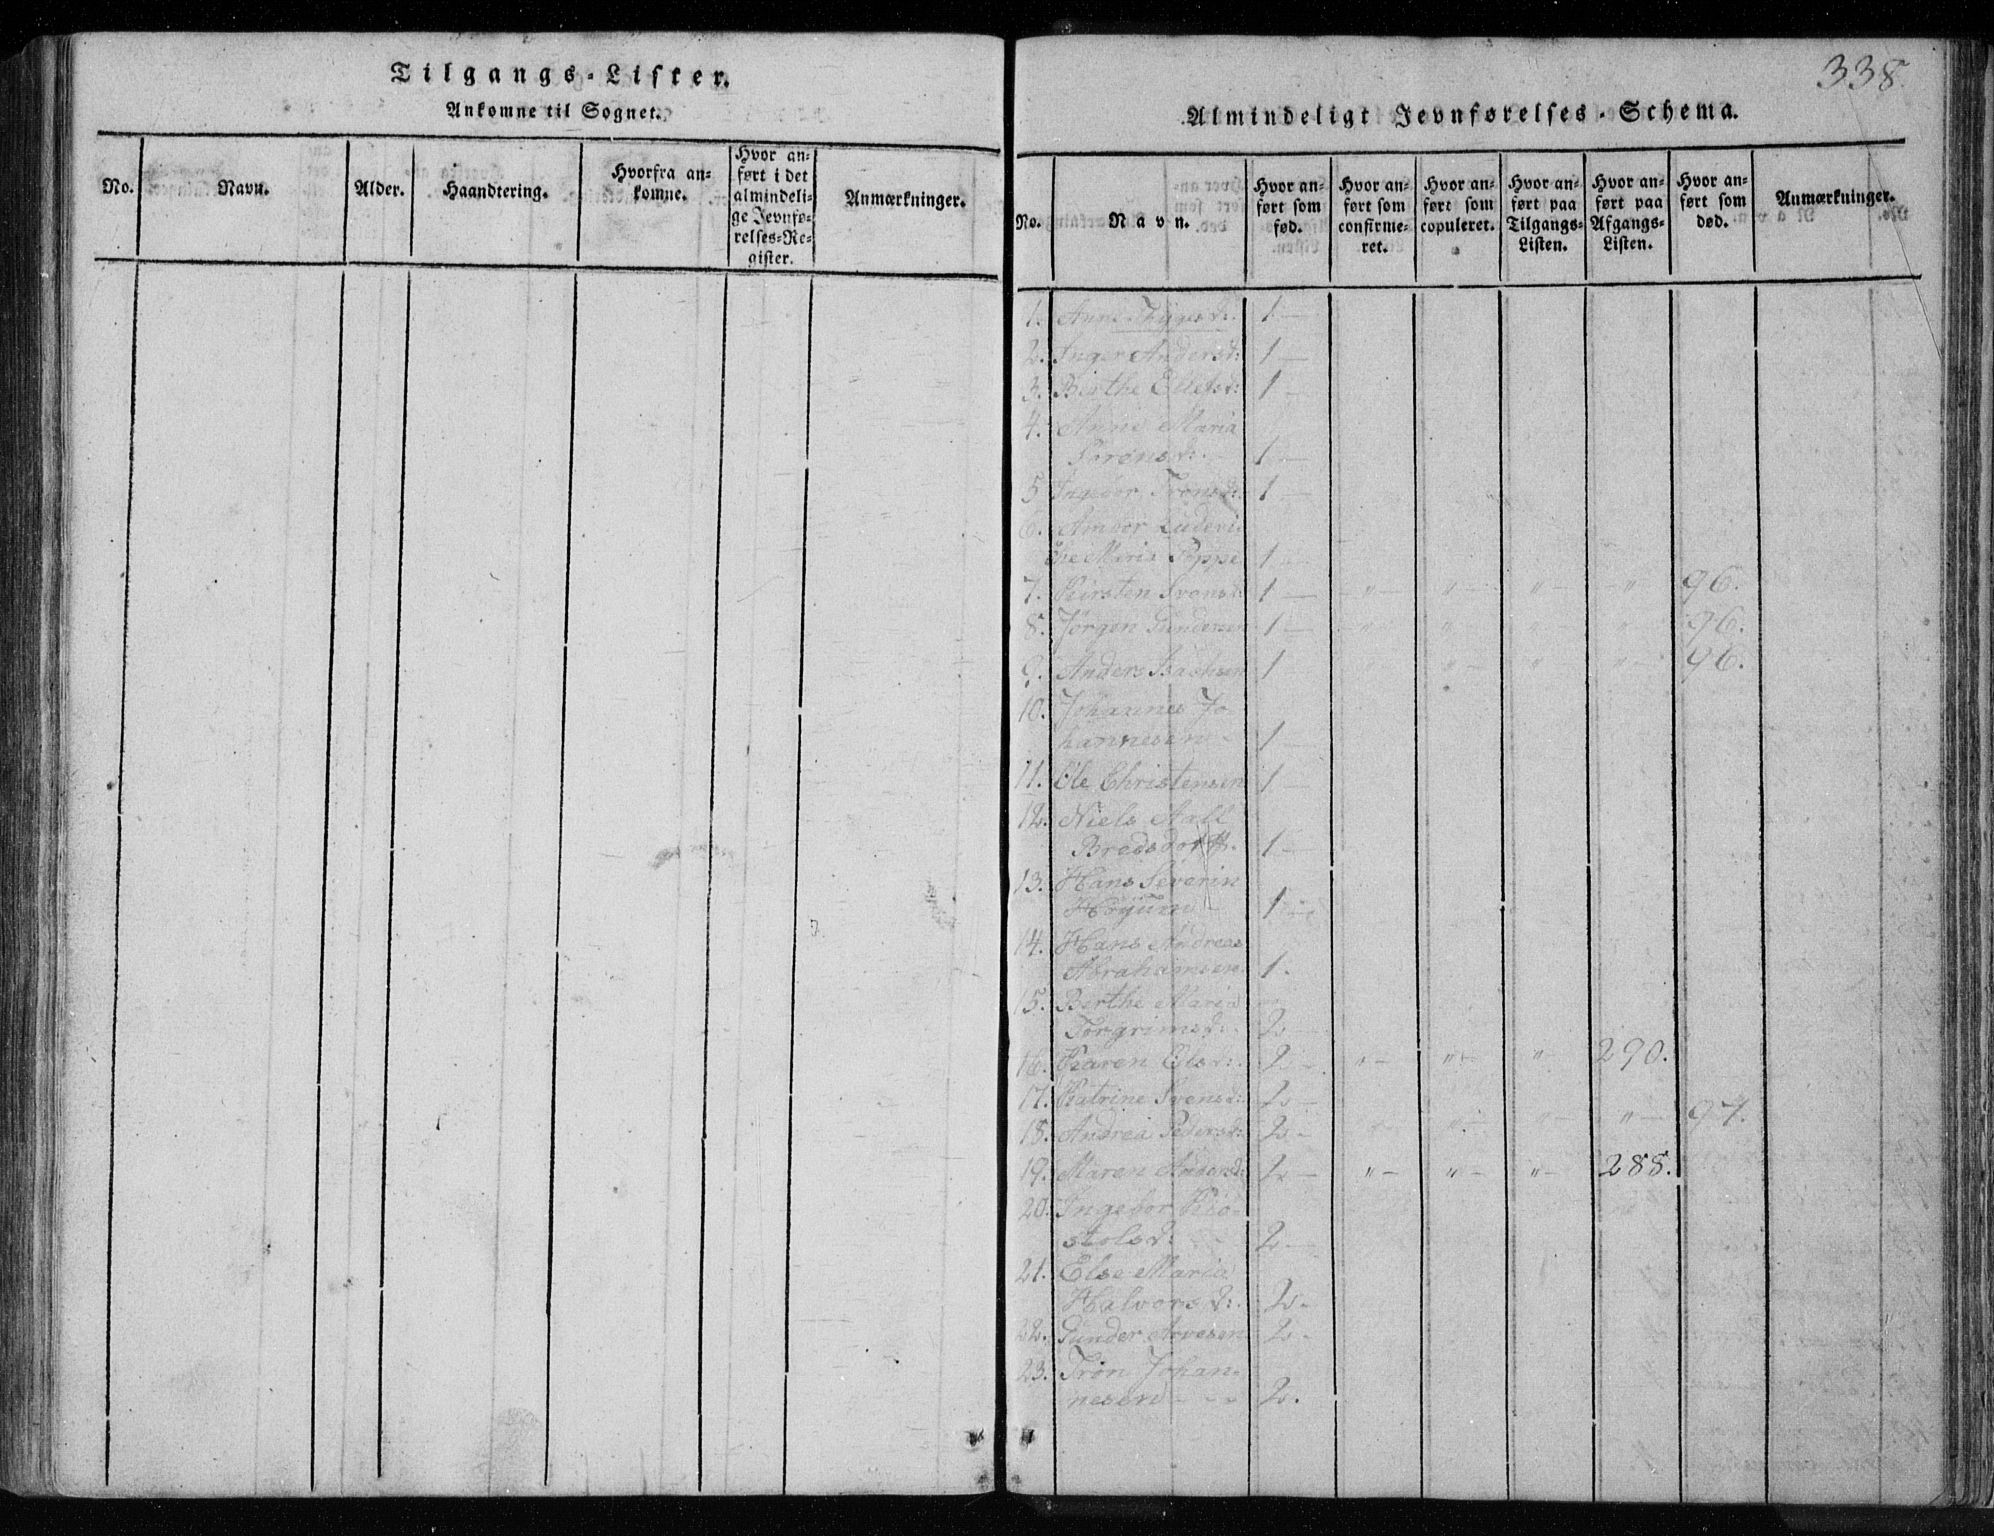 Tilgangs-Lister.
Ankomne til Sognet.
No.
Navn.
Alder.
Haandtering.
Hvorfra an-
komne.
Hvor an-
ført i det
almindeli-
ge Jevnfø-
relses-Re-
gister.
Anmærkninger.
338.
Almindeligt Jevnførelses-Schema.
No.
Navn.
Hvor an-
ført som
fød.
Hvor an-
ført som
confirme-
ret.
Hvor an-
ført som
copuleret.
Hvor an-
ført paa
Tilgangs-
Listen.
Hvor an-
ført paa
Afgangs-
Listen.
Hvor an-
ført som
død.
Anmærkninger.
1. Anne Thygesd: 1 —
2. Inger Andersd: 1 —
3. Berthe Ellefsd: 1 —
4. Anne Maria
Sørensd: - 1 —
5 Ingebor Tronsd: 1 —
6. Ambor Ludevi-
Maria Poppe 1 —
7. Kirsten Svensd: 1 — - " - " - " - " 96.
8. Jørgen Gundersen 1 — - " - " " - " 96.
9. Anders Isachsen 1 " " - " " - 96.
10. Johannes Jo-
hannesen - 1 —
11. Ole Christensen 1 —
12. Niels Aall
Bredsdorff. 1 —
13. Hans Severin
Høyum 1 —
14. Hans Andreas
Abrahamsen 1.
15. Berthe Maria
Torgrimsd: 2 —
16. Karen Olsd: 2 - " - " - " - 290.
17. Katrine Svensd: 2 -
18. Andrea Pedersd: 2 - " - " - " - " - 97.
19. Maren Andersd: 2 - " - " - " - 288.
20. Ingebor Kio-
stolsd: 2 -
21. Else Maria
Halvorsd: 2 -
22. Gunder Arvesen 2 -
23. Tron Johan-
nesen - - - 2.